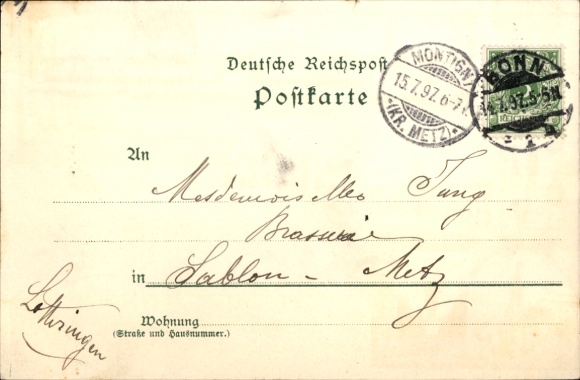 Deutsche Reichspost
Postkarte
MONTIGNY
15.7.97.6-7N.
*(KR. METZ)*
BONN
14.7.97.5-6N
* 2 a
An
Mesdemoiselles Jung
Brasserie
in Sablon - Metz
Lothringen
Wohnung
(Straße und Hausnummer.)